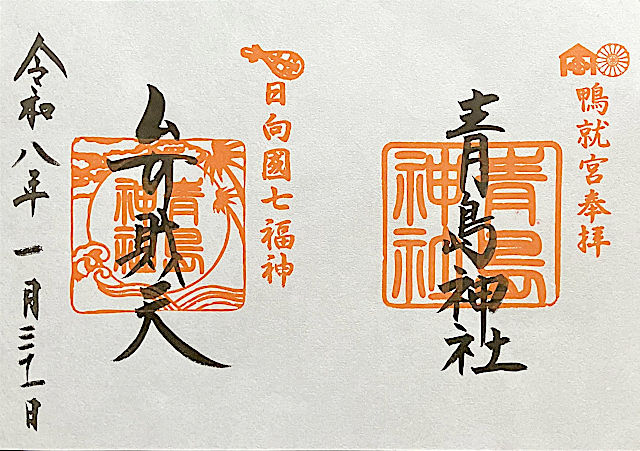 鴨就宮奉拝
青島神社
青島
神社
日向國七福神
弁財天
青島
神社
令和八年一月三十一日